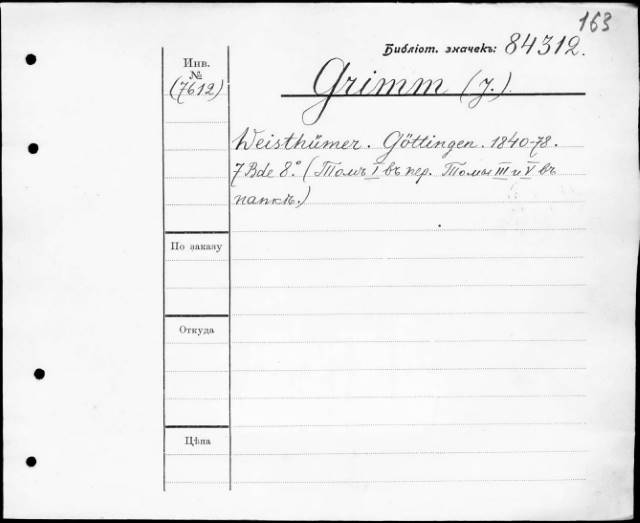 163
Библіот. значекъ: 84312.
Инв.
№
(7612)
Grimm (J.).
Weisthümer. Göttingen. 1840-78.
7 Bde 8.° (Томъ I въ пер. Томы III и V въ
папкѣ.)
По заказу
Откуда
Цѣна